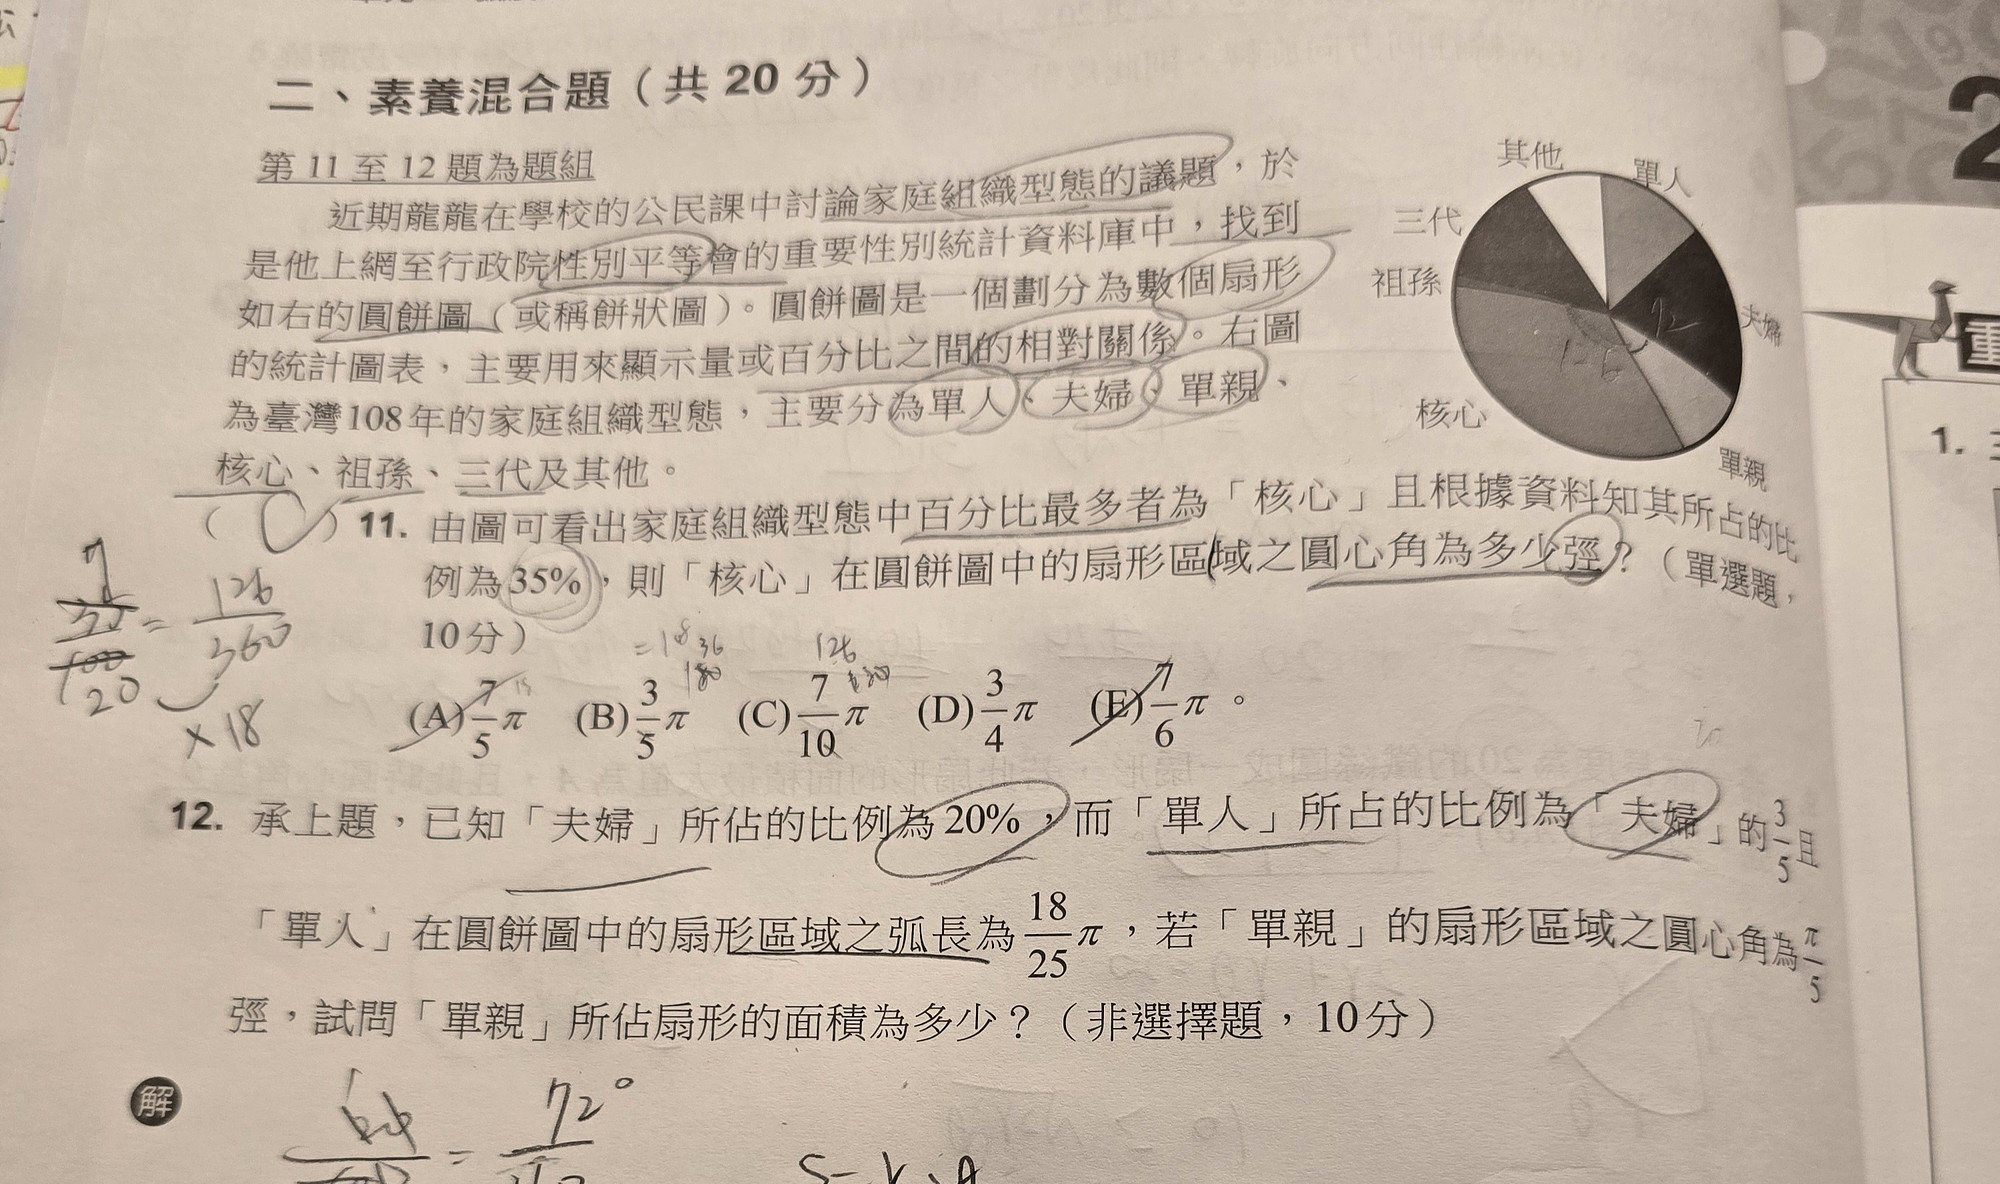 二、素養混合題（共 20 分）
第 11 至 12 題為題組
近期龍龍在學校的公民課中討論家庭組織型態的議題，於
是他上網至行政院性別平等會的重要性別統計資料庫中，找到
如右的圓餅圖（或稱餅狀圖）。圓餅圖是一個劃分為數個扇形
的統計圖表，主要用來顯示量或百分比之間的相對關係。右圖
為臺灣108年的家庭組織型態，主要分為單人、夫婦、單親、
核心、祖孫、三代及其他。
其他
單人
三代
祖孫
夫婦
72
126
核心
單親
（ C ）11. 由圖可看出家庭組織型態中百分比最多者為「核心」且根據資料知其所占的比
例為35%，則「核心」在圓餅圖中的扇形區域之圓心角為多少弳？（單選題，
10分）
(A) 7/5 π (B) 3/5 π (C) 7/10 π (D) 3/4 π (E) 7/6 π。
7
100
20
= 126/360
×18
126
12. 承上題，已知「夫婦」所佔的比例為20%，而「單人」所占的比例為「夫婦」的 3/5 且
「單人」在圓餅圖中的扇形區域之弧長為 18/25 π，若「單親」的扇形區域之圓心角為 π/5
弳，試問「單親」所佔扇形的面積為多少？（非選擇題，10分）
解
= 72°
2
重
1.